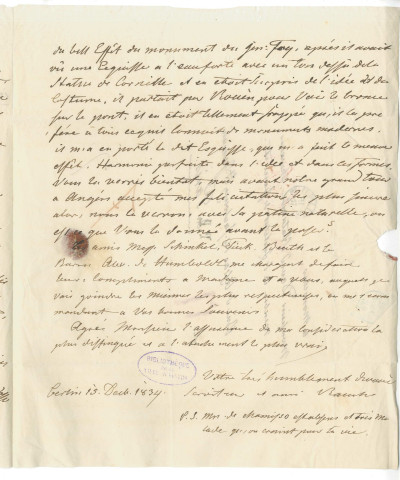 du bell Effet du monument du gen: Foy, après il avait
vu une Esquisse a l'eau forte avec un tres dessin de la
Statue de Corneille et en etoit surpris de l'idée et du
Costume, il partoit par Rouën pour voir le bronce
sur le pont, il en etoit tellement frappé qu'il la pre
fére à tous ce qu'il connoit de monuments modernes.
il m'a en porté le dit Esquisse, qui m'a fait le meme
effet. Harmonie parfaite dans l'idée et dans les formes
Vous les verrés bientot, mais avant notre grand
a Angers mes felicitations les plus sincere
alors nous le verrons avec sa patine naturelle, ou
est ce que Vous la donnés avant le
Les amis Mess. Schinkel, Tieck, Beuth et le
Baron Alex. de Humboldt me chargent de faire
leurs Compliments a Madame et a Vous, auxquels je
vais joindre les miennes les plus respectueuses, en me recom
mandant a Vos bonnes Souvenirs
Agrés Monsieur l'assurance de ma consideration la
plus distinguée et a l'attachement le plus vrai,
Votre tres humblement devoué
Berlin 13. Decb. 1834. Serviteur et ami Rauch
P. S. Mos. de Chamisso est alors et très Ma
lade qu'on craint pour la vie.